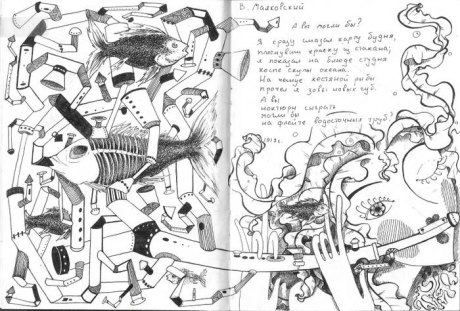 В. Маяковский
А вы могли бы?
Я сразу смазал карту будня,
плеснувши краску из стакана;
я показал на блюде студня
косые скулы океана.
На чешуе жестяной рыбы
прочел я зовы новых губ.
А вы
ноктюрн сыграть
могли бы
на флейте водосточных труб?
1913г.